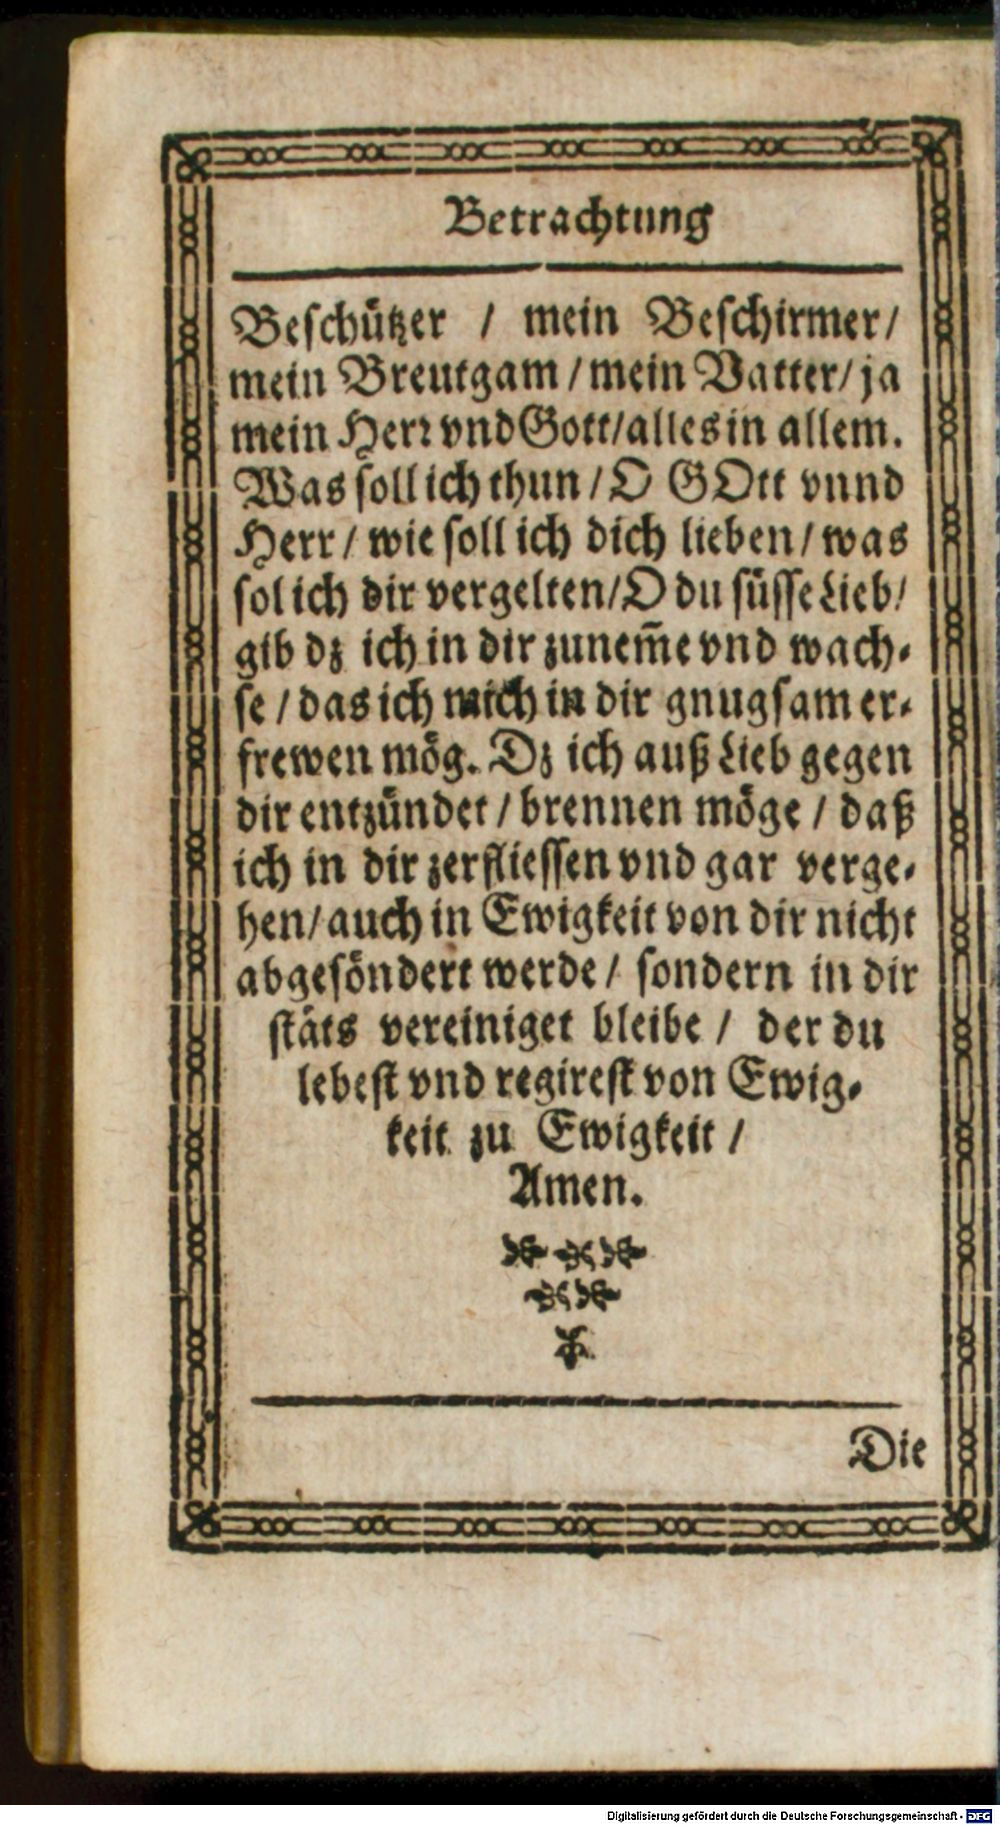 Betrachtung
Beschützer / mein Beschirmer/
mein Breutgam / mein Vatter/ ja
mein Herr vnd Gott/alles in allem.
Was soll ich thun / O GOtt vnnd
Herr / wie soll ich dich lieben / was
sol ich dir vergelten/O du süsse Lieb/
gib dz ich in dir zunem̃e vnd wach-
se / das ich mich in dir gnugsam er-
frewen mög. Dz ich auß Lieb gegen
dir entzündet / brennen möge / daß
ich in dir zerfliessen vnd gar verge-
hen/auch in Ewigkeit von dir nicht
abgesöndert werde / sondern in dir
stäts vereiniget bleibe / der du
lebest vnd regirest von Ewig-
keit zu Ewigkeit /
Amen.
Die
Digitalisierung gefördert durch die Deutsche Forschungsgemeinschaft - DFG